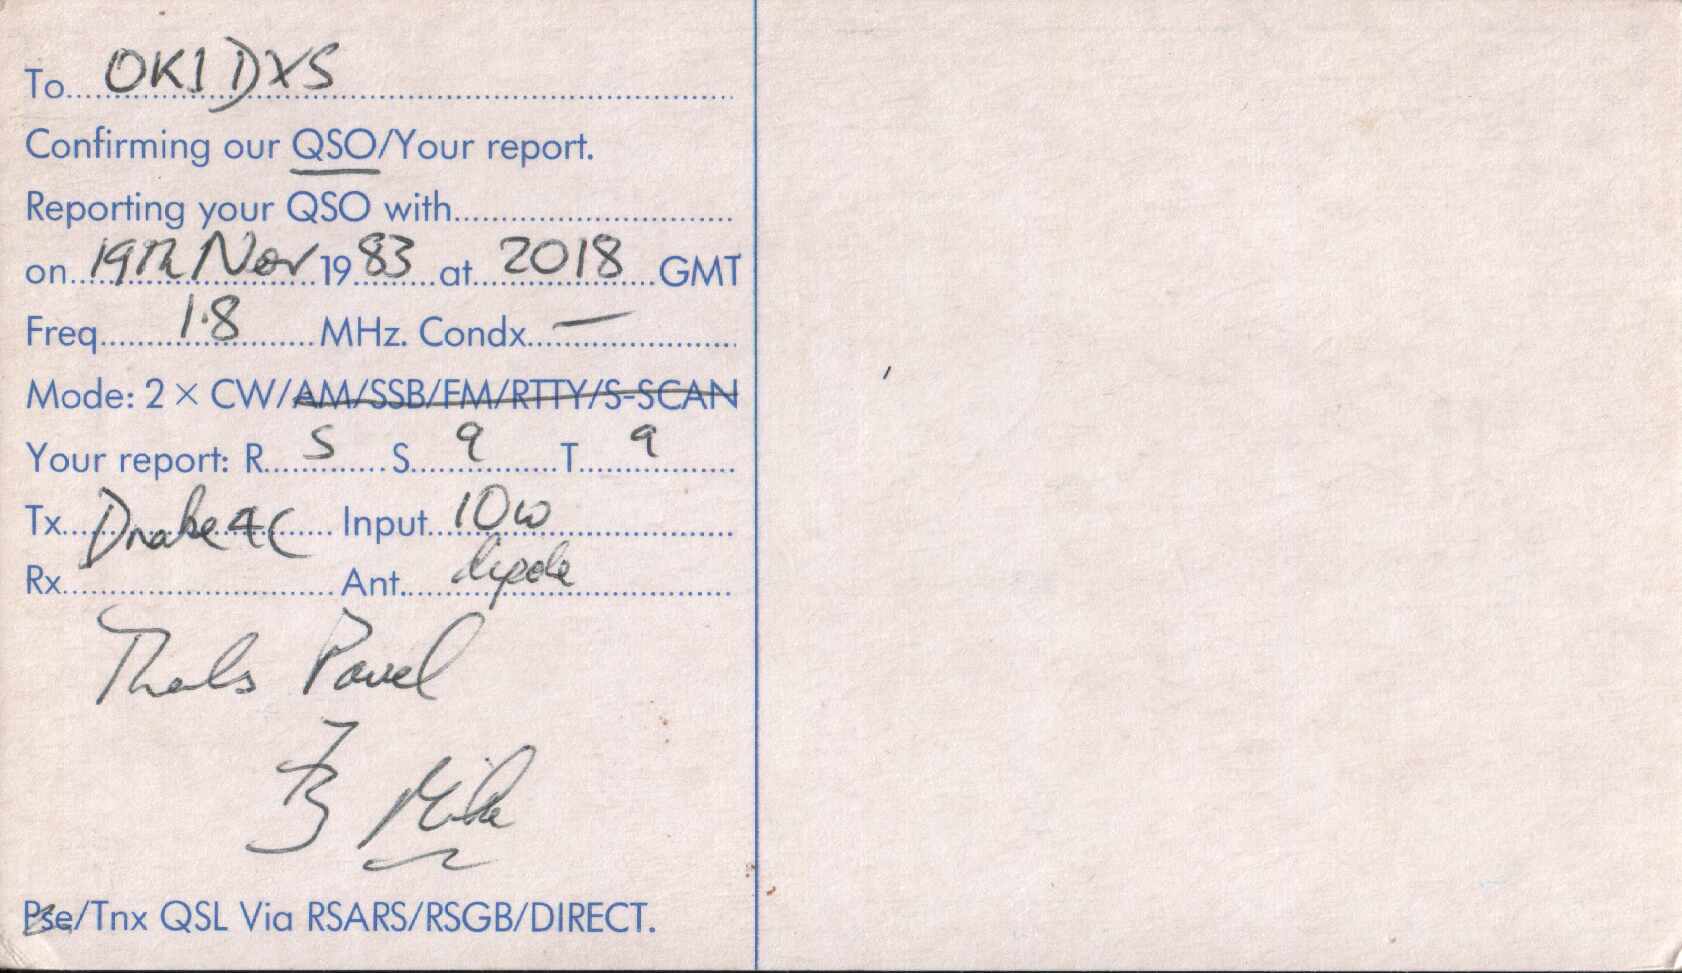 To OK1DXS
Confirming our QSO/Your report.
Reporting your QSO with
on 19Th Nov 1983 at 2018 GMT
Freq 1.8 MHz. Condx —
Mode: 2 × CW/AM/SSB/FM/RTTY/S-SCAN
Your report: R 5 S 9 T 9
Tx Drake 4C Input 10w
Rx Ant. dipole
Thanks Pavel
73 Mike
Pse/Tnx QSL Via RSARS/RSGB/DIRECT.